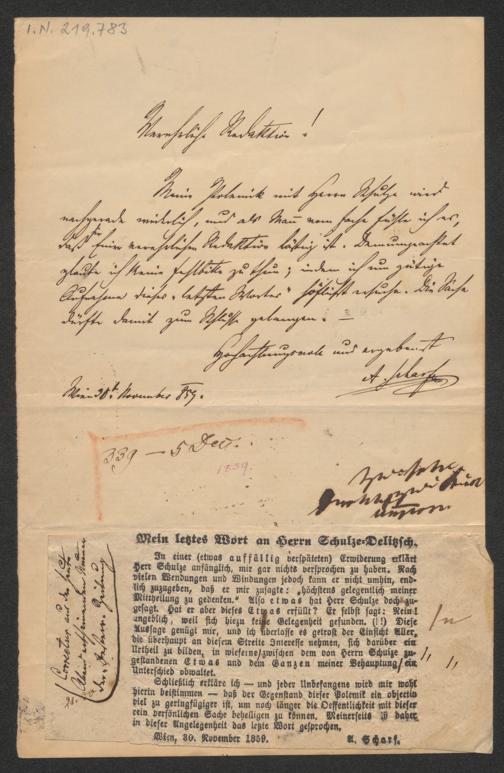 I.N. 219.783
Verehrliche Redaktion!
Meine Polemik mit Herrn Schulze wird
nachgerade widerlich, und als Mann vom Fache fühle ich es,
daß sie einer verehrlichen Redaktion lästig ist. Demungeachtet
glaube ich keine Fehlbitte zu thun; indem ich um gütige
Aufnahme dieses „letzten Wortes“ höflichst ersuche. Die Sache
dürfte damit zum Schlusse gelangen. —
Hochachtungsvoll und ergebenst
A. Scharf
Wien 30t. November 859.
339 — 5 Dec.
1859.
Mein letztes Wort an Herrn Schulze-Delitzsch.
In einer (etwas auffällig verspäteten) Erwiderung erklärt
Herr Schulze anfänglich, mir gar nichts versprochen zu haben. Nach
vielen Wendungen und Windungen jedoch kann er nicht umhin, end-
lich zuzugeben, daß er mir zusagte: „höchstens gelegentlich meiner
Mittheilung zu gedenken.“ Also etwas hat Herr Schulze doch zu-
gesagt. Hat er aber dieses Etwas erfüllt? Er selbst sagt: Nein!
angeblich, weil sich hiezu keine Gelegenheit gefunden. (!!) Diese
Aussage genügt mir, und ich überlasse es getrost der Einsicht Aller,
die überhaupt an diesem Streite Interesse nehmen, sich darüber ein
Urtheil zu bilden, in wieferne zwischen dem von Herrn Schulze zu-
gestandenen Etwas und dem Ganzen meiner Behauptung ein
Unterschied obwaltet.
Schließlich erkläre ich — und jeder Unbefangene wird mir wohl
hierin beistimmen — daß der Gegenstand dieser Polemik ein objectiv
viel zu geringfügiger ist, um noch länger die Oeffentlichkeit mit dieser
rein persönlichen Sache behelligen zu können. Meinerseits ist daher
in dieser Angelegenheit das letzte Wort gesprochen.
Wien, 30. November 1859.
A. Scharf.